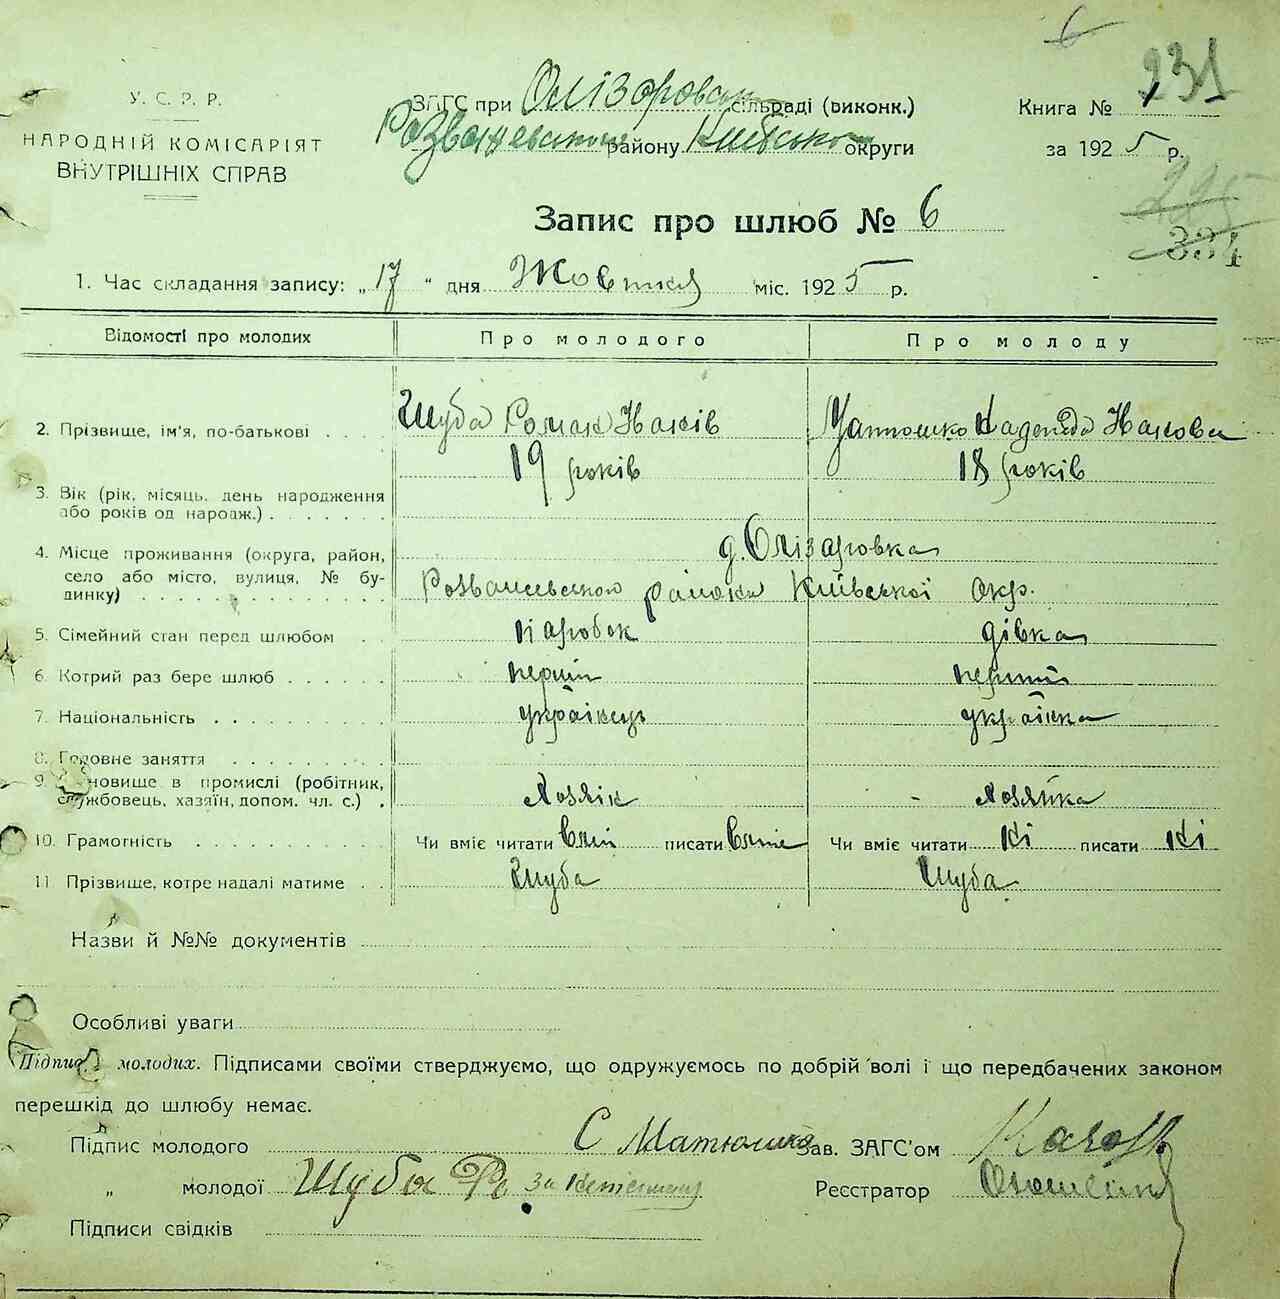 6
231
У. С. Р. Р.
НАРОДНІЙ КОМІСАРІЯТ
ВНУТРІШНІХ СПРАВ
ЗАГС при Олізаровськ сільраді (виконк.)
Розважевського району Київської округи
Книга №
за 1925 р.
225
334
Запис про шлюб № 6
1. Час складання запису: „17“ дня Жовтня міс. 1925 р.
Відомості про молодих Про молодого Про молоду
2. Прізвище, ім'я, по-батькові . . . . Шуба Роман Надежда
19 років 18 років
3. Вік (рік, місяць, день народження
або років од народж.) . . . . . . .
4. Місце проживання (округа, район, д. Олізаровка
село або місто, вулиця, № бу- Розважевського району Київської окр.
динку) . . . . . . . . . . . . .
5. Сімейний стан перед шлюбом . . паробок дівка
6. Котрий раз бере шлюб . . . . . . перший перший
7. Національність . . . . . . . . . українець українка
8. Головне заняття . . . . . . . . .
9. новище в промислі (робітник,
службовець, хазяїн, допом. чл. с.) . Хозяїн - Хозяйка
10. Грамотність . . . . . . . . . . Чи вміє читати вміє писати вміє Чи вміє читати ні писати ні
11 Прізвище, котре надалі матиме . . Шуба Шуба
Назви й №№ документів
Особливі уваги
Підпис молодих. Підписами своїми стверджуємо, що одружуємось по добрій волі і що передбачених законом
перешкід до шлюбу немає.
Підпис молодого С Матюшко Зав. ЗАГС'ом
„ молодої Шуба Ро за Реєстратор
Підписи свідків